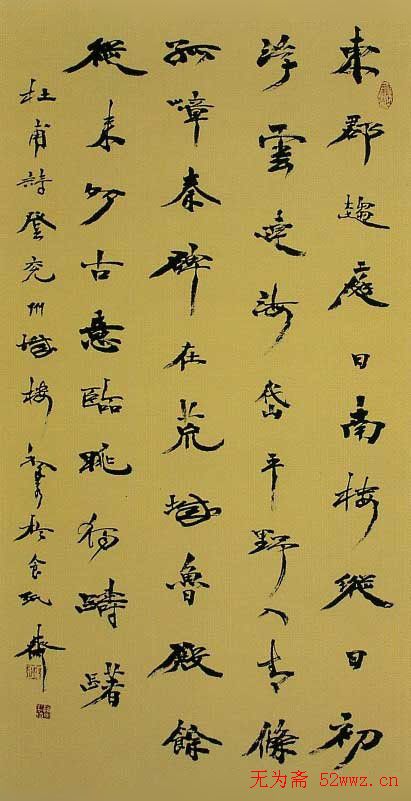 東郡趨庭日南樓縱目初
浮雲連海岱平野入青徐
孤嶂秦碑在荒城魯殿餘
從來多古意臨眺獨躊躇
杜甫詩登兗州城樓 於食 齋
无为斋 52wwz.cn